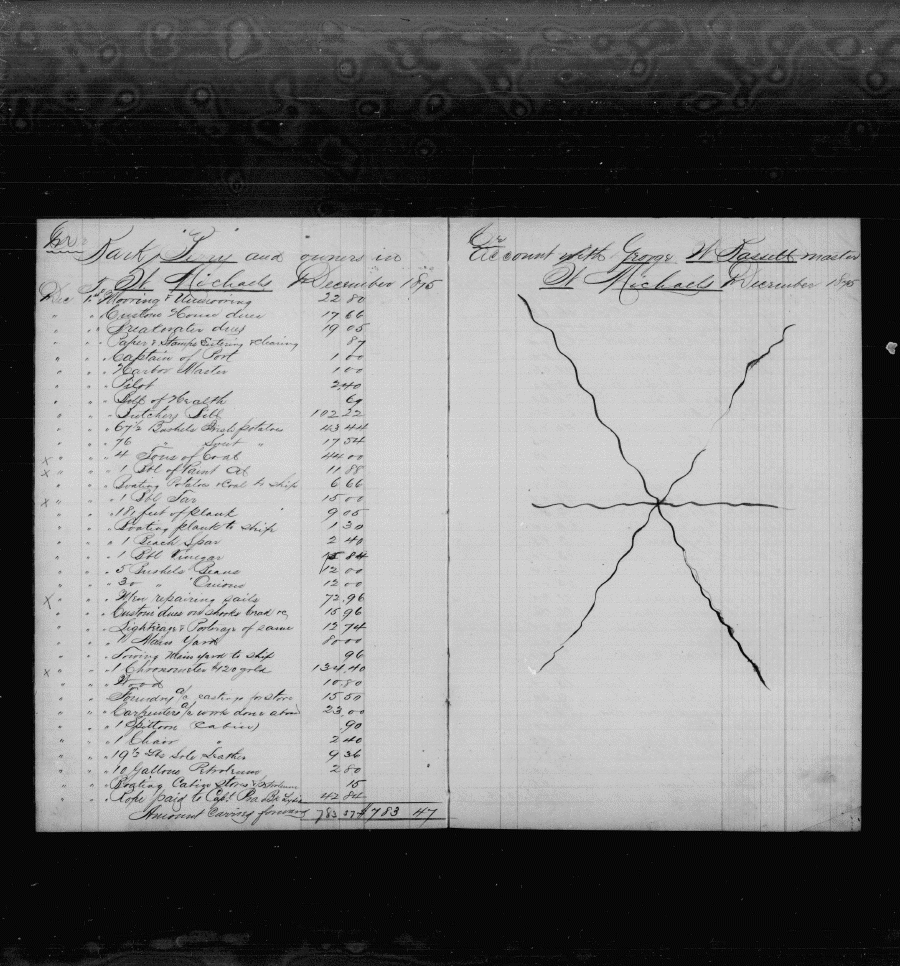 Dr. Bark "Perry" and owners in
St. Michaels December 1875
Dec 1st To Mooring & Unmooring 22 80
" " " Custom House dues 17 66
" " " Breakwater dues 19 05
" " " Paper & Stamps Entering & Clearing 87
" " " Captain of Port 1 00
" " " Harbor Master 1 00
" " " Pilot 2 40
" " " Bill of Health 69
" " " Butchers Bill 102 22
" " " 67½ Bushels Irish potatoes 43 44
" " " 76 " Sweet " 17 54
x " " " 4 Tons of Coal 44 00
x " " " 1 Bbl of Paint Oil 11 88
" " " Boating Potatoes & Coal to ship 6 66
x " " " 1 Bbl Tar 15 00
" " " 181 feet of plank 9 05
" " " Boating plank to ship 1 30
" " " 1 Beach Spar 2 40
" " " 1 Bbl Vinegar 15 84
" " " 5 Bushels Beans 12 00
" " " 30 " Onions 12 00
x " " " Men repairing sails 72.96
" " " Custom dues on shooks bread &c 15 96
" " " Lighterage & Porterage of same 12 74
" " " 1 Main Yard 80 00
" " " Towing Main yard to ship 96
x " " " 1 Chronometer $120 gold 134.40
" " " Wood 10.80
" " " Foundry a/c castings for stove 15.50
" " " Carpenters a/c work done aboard 23.00
" " " 1 Spittoon (Cabin) 90
" " " 1 Chair " 2 40
" " " 19½ Lbs Sole Leather 9 36
" " " 10 Gallons Petroleum 2 80
" " " Boating Cabin Stores & Petroleum 15
" " " Rope paid to Capt. Bk Lydia 42 84
Amount carried forward 783 47 $783 47
Cr
Account with George W Bassett master
St Michaels December 1875